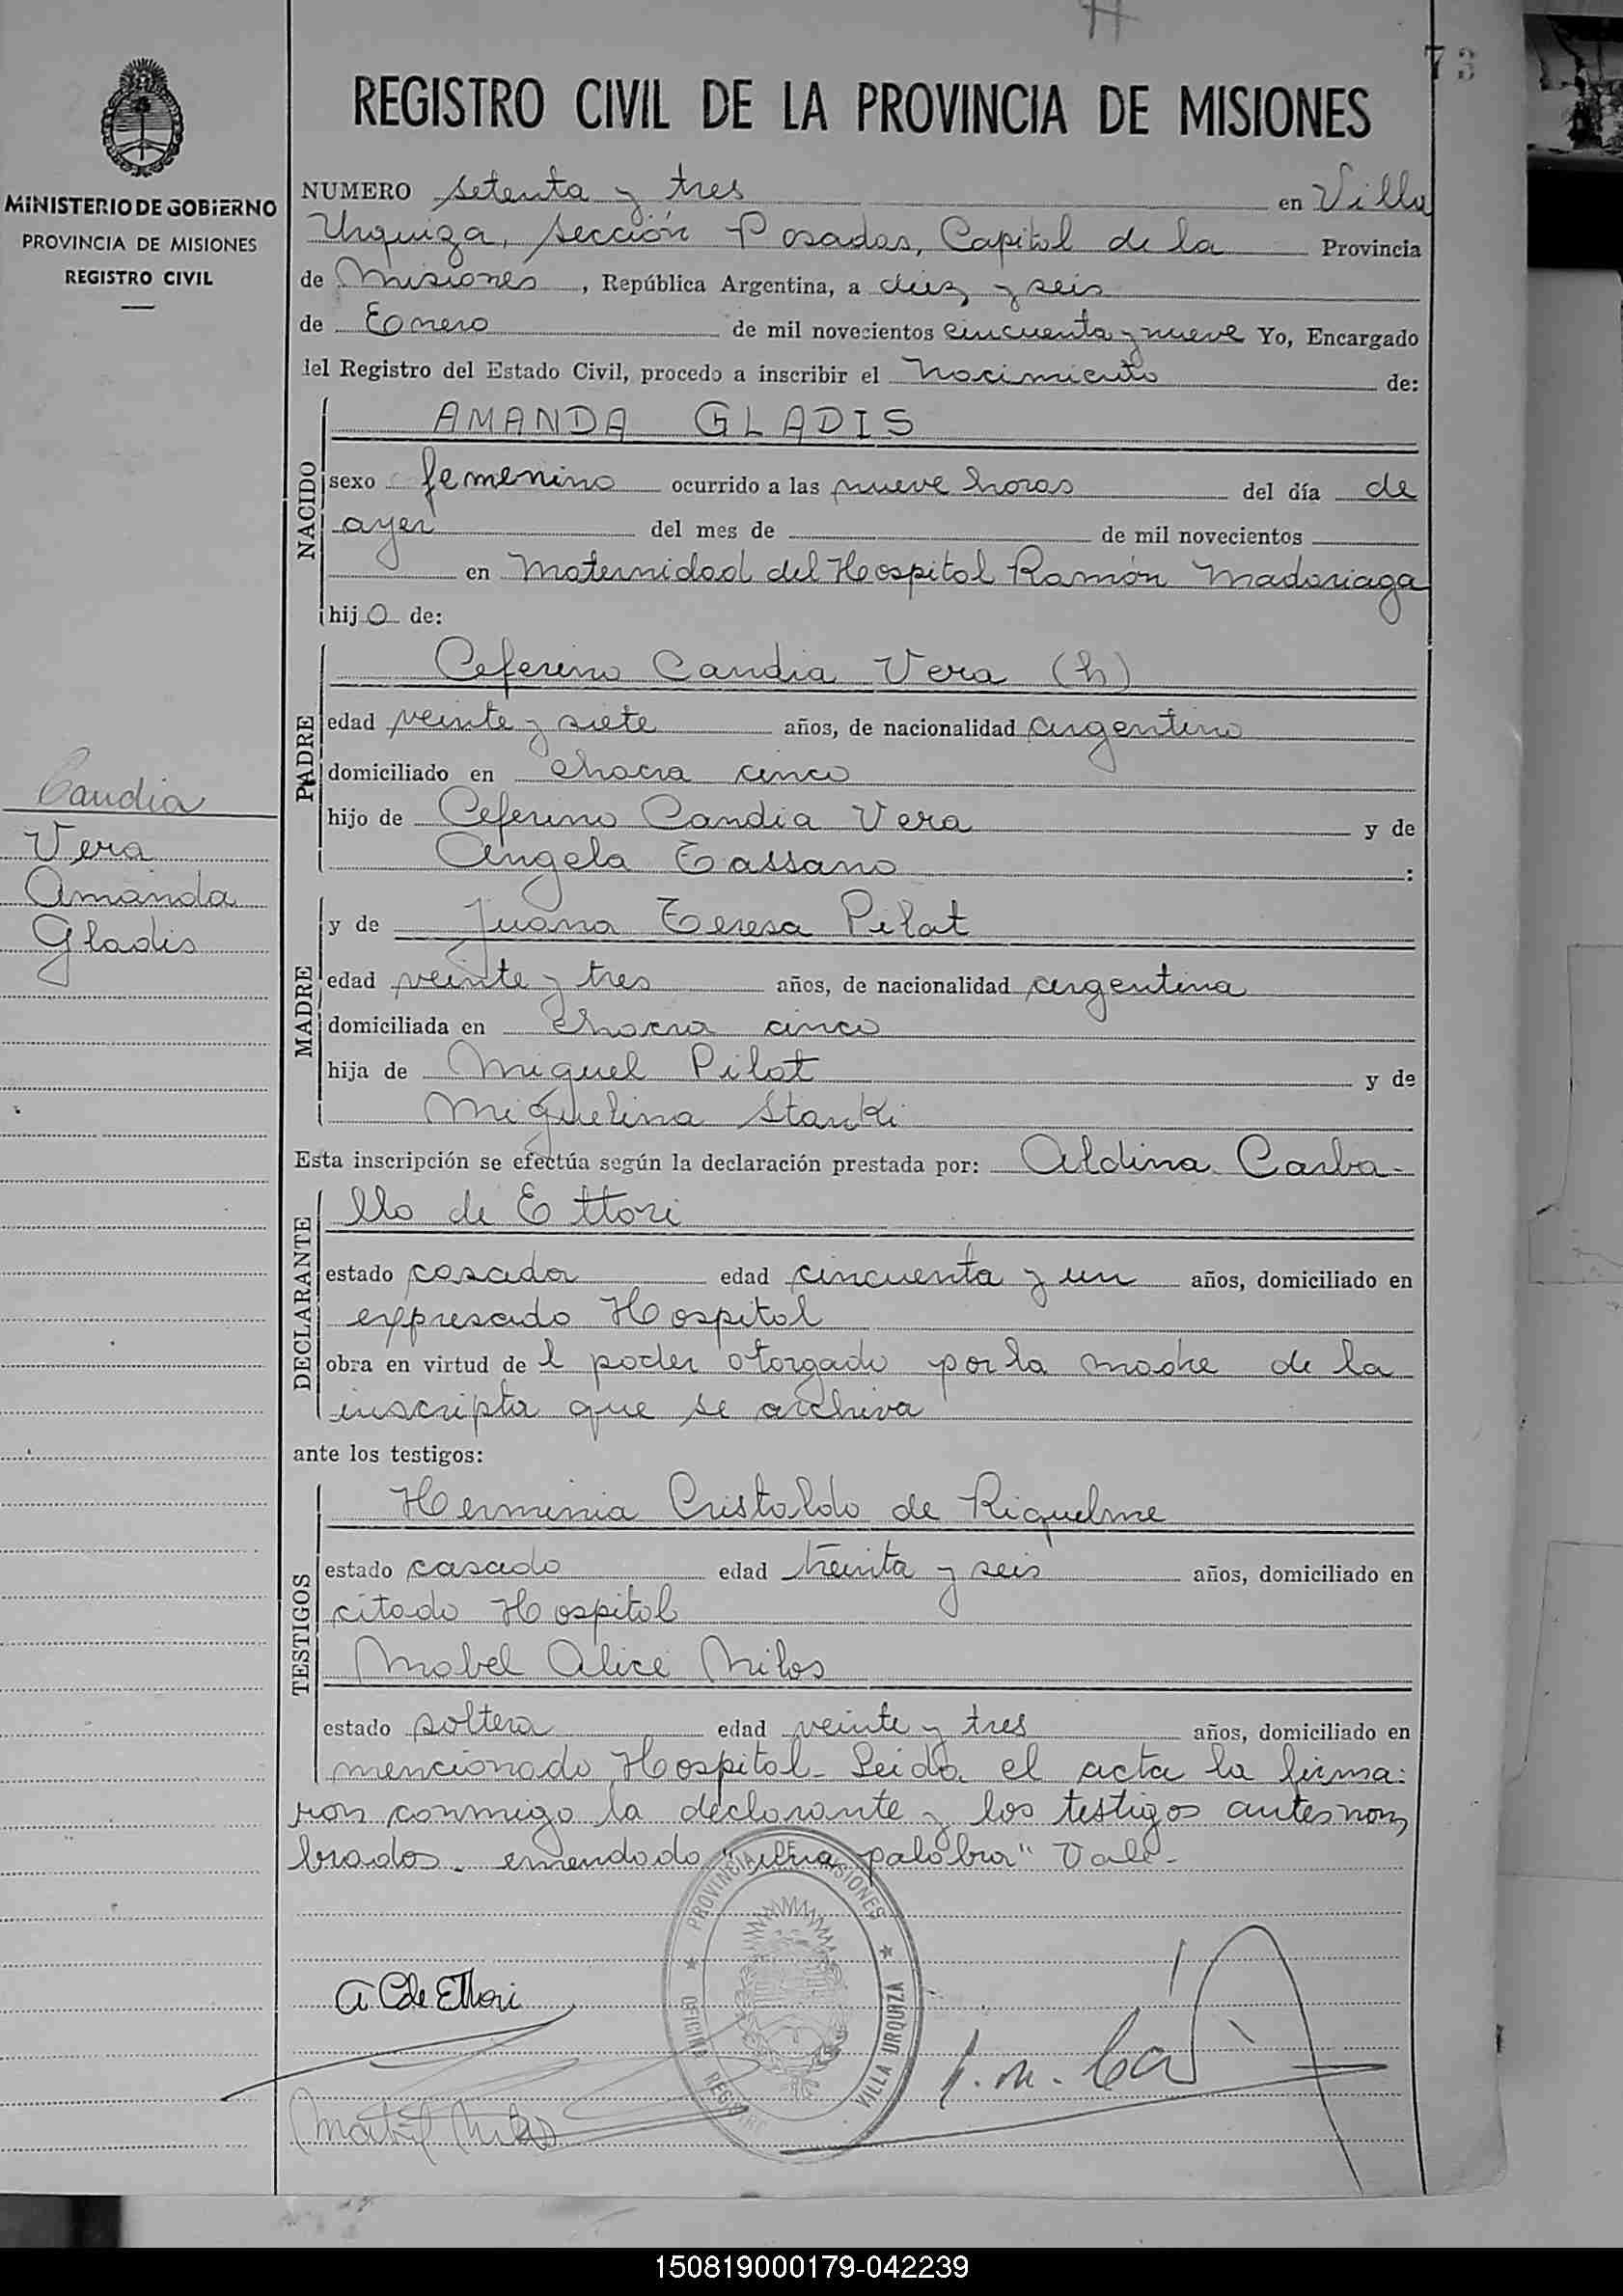 73
MINISTERIO DE GOBIERNO
PROVINCIA DE MISIONES
REGISTRO CIVIL
Candia
Vera
Amanda
Gladis
REGISTRO CIVIL DE LA PROVINCIA DE MISIONES
NUMERO setenta y tres en Villa
Urquiza, sección Posadas, Capital de la Provincia
de Misiones, República Argentina, a diez y seis
de Enero de mil novecientos cincuenta y nueve Yo, Encargado
del Registro del Estado Civil, procedo a inscribir el nacimiento de:
NACIDO
AMANDA GLADIS
sexo femenino ocurrido a las nueve horas del día de
ayer del mes de de mil novecientos
en Maternidad del Hospital Ramón Madariaga
hija de:
PADRE
Ceferino Candia Vera (h)
edad veinte y siete años, de nacionalidad argentino
domiciliado en chacra cinco
hijo de Ceferino Candia Vera y de
Angela Tassano :
MADRE
y de Juana Teresa Pilat
edad veinte y tres años, de nacionalidad argentina
domiciliada en chacra cinco
hija de Miguel Pilat y de
Miguelina Stanki
Esta inscripción se efectúa según la declaración prestada por: Aldina Carba-
DECLARANTE
llo de Ettori
estado casada edad cincuenta y un años, domiciliado en
expresado Hospital
obra en virtud del poder otorgado por la madre de la
inscripta que se archiva
ante los testigos:
TESTIGOS
Herminia Cristaldo de Riquelme
estado casado edad treinta y seis años, domiciliado en
citado Hospital
Mabel Alice Milos
estado soltera edad veinte y tres años, domiciliado en
mencionado Hospital- Leida el acta la firma:
ron conmigo la declarante y los testigos antes nom
brados- enmendado "una palabra" Vale-
PROVINCIA DE MISIONES
OFICINA VILLA URQUIZA
A C de Ettori
Mabel Milos
150819000179-042239